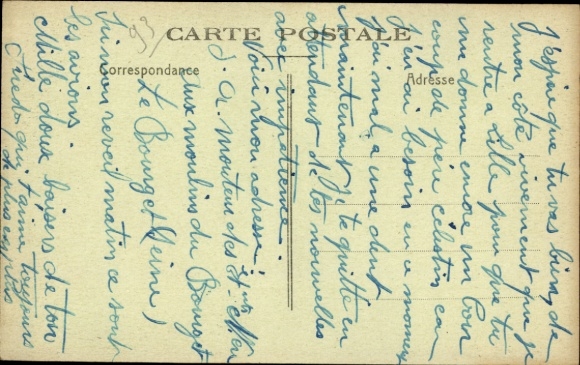 CARTE POSTALE
Correspondance
Adresse
J'espère que tu vas bien, de
mon côté vivement que je
rentre a Lille pour que tu
me donne encore un bon
coup de père célestin car
j'en ai besoin en ce moment
j'ai mal a une dent
maintenant je te quitte en
atendant de tes nouvelles
avec impatience.
Voici mon adresse:
S. A. mouture des
aux moulins du Bourget
Le Bourget (Seine)
Ici mon reveil matin ce sont
les avions.
Mille doux baisers de ton
qui t'aime toujours
de plus en plus